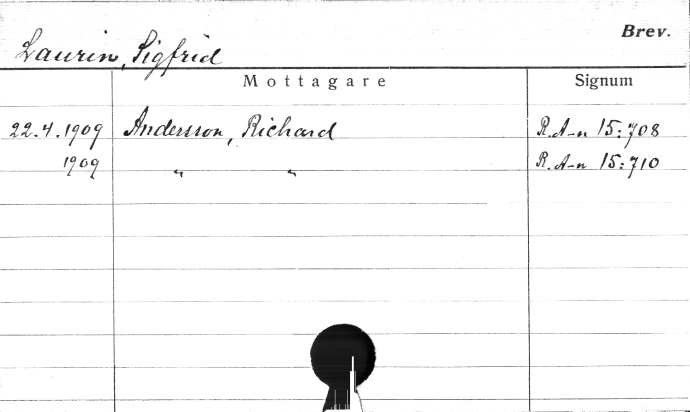 Brev.
Laurin, Sigfrid
Mottagare Signum
22.4.1909 Andersson, Richard R. A-n 15:708
1909 " " R. A-n 15:710